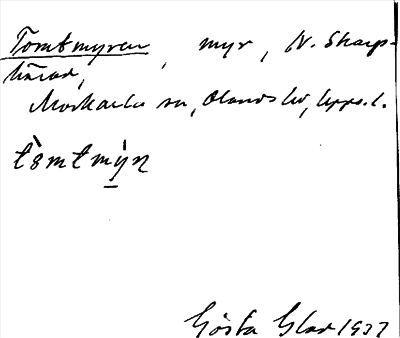 Tomtmyren, myr, N. Skarps-
härad,
Morkarla sn, Olands hd, Upps. l.
tòmtmýn
Gösta Glad 1937